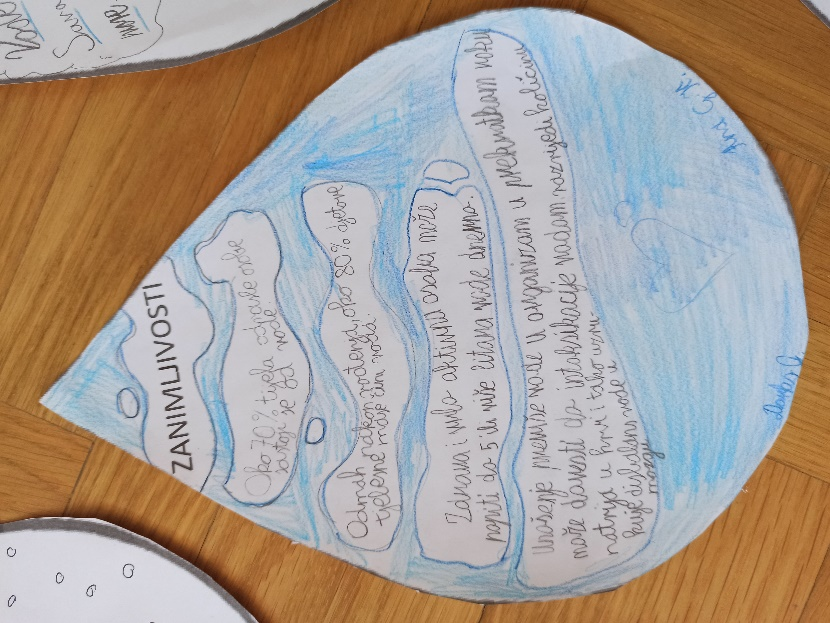 ZANIMLJIVOSTI
Oko 70 % tijela odrasle osobe
sastoji se od vode.
Odmah nakon rođenja, oko 80 % djetove
tjelesne mase čini voda.
Zdrava i vrlo aktivna osoba može
popiti do 5 ili više litara vode dnevno.
Unošenje previše vode u organizam u prekratkom roku
može dovesti do intoksikacije vodom, razrijedi količinu
natrija u krvi i tako uzro-
kuje disbalans vode u
mozgu
Ana G. M.
Voda
Sava
more